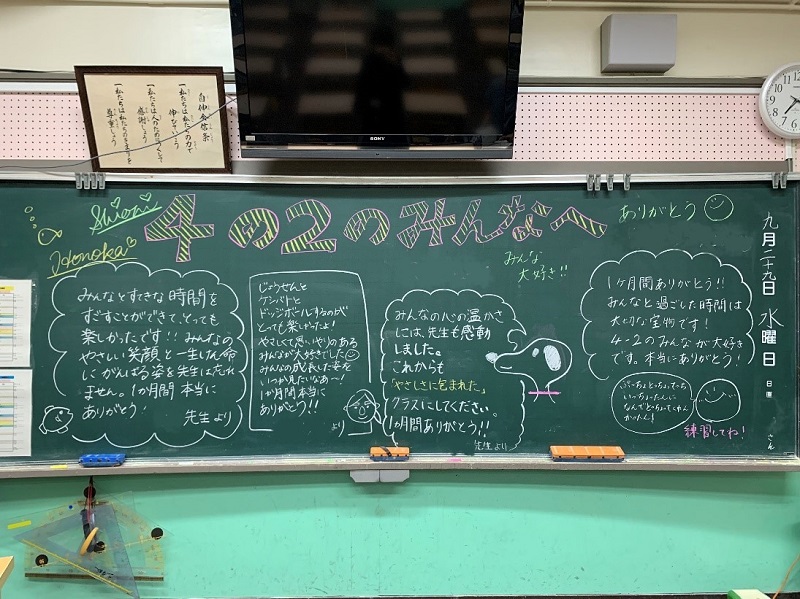 自伸会信条
一私たちは私たちの力で
伸びていこう
一私たちは人のためにつくして
感謝しよう
一私たちは私たちのきまりを
尊重しよう
SONY
Shiori
Honoka
4の2のみんなへ
ありがとう
みんな
大好き!!
みんなとすてきな時間を
すごすことができて、とっても
楽しかったです!!みんなの
やさしい笑顔と一生けん命
にがんばる姿を先生は忘れ
ません。1か月間本当に
ありがとう!
先生より
じょうせんと
ケンバトと
ドッジボールするのが
とっても楽しかったよ!
やさしくて思いやりのある
みんなが大好きでした
みんなの成長した姿を
いつか見たいなあ〜!
1か月間本当に
ありがとう!!
より
みんなの心の温かさ
には、先生も感動
しました。
これからも
「やさしさに包まれた」
クラスにしてください。
1か月間ありがとう!!
先生より
1ヶ月間ありがとう!!
みんなと過ごした時間は
大切な宝物です!
4-2のみんなが大好き
です。本当にありがとう!
練習してね!
九月二十九日 水曜日
日直
さん